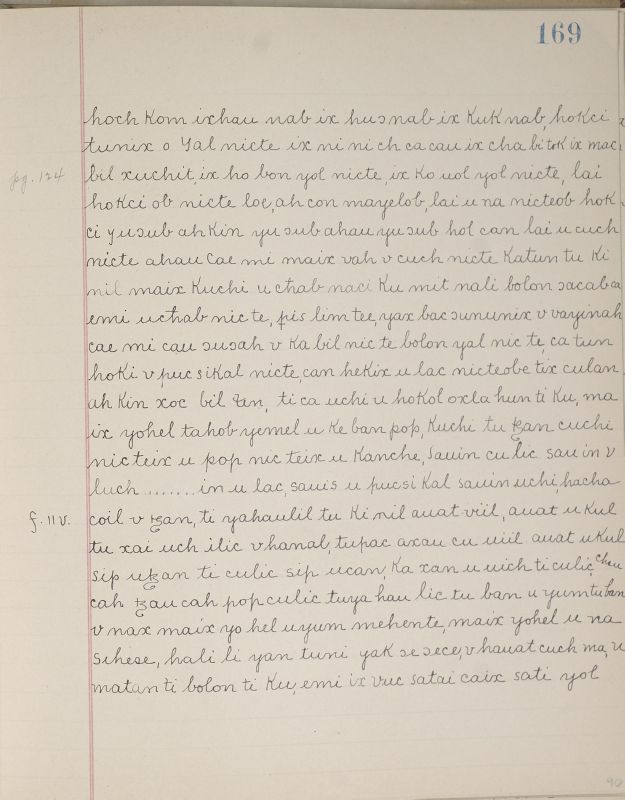 169
hoch Kom ixhau nab ix hus nab ix Kuk nab, hokci
tunix o Yal nicte ix ni ni ch ca cau ix cha bi tok ix mac
pg. 124 bil xuchit, ix ho bon yol nicte, ix Ko uol yol nicte, lai
hokci ob nicte loe, ah con mayelob, lai u na nicteob hok
ci yusub ah Kin yu sub ahau yu sub hol can lai u cuch
nicte ahau Cae mi maix vah v cuch nicte Katun tu Ki
nil maix Kuchi u chab naci Ku mit nali bolon sacab ca
emi uchab nic te, pis lim tee, yax bac sununix v vayinah
cae mi cau susah v Ka bil nic te bolon yal nic te, ca tun
hoki v puc sikal nicte, can hekix u lac nicteobe tix culan
ah Kin xoc bil tun, ti ca uchi u hokol oxla hun ti Ku, ma
ix yohel tahob yemel u Ke ban pop, Kuchi tu ꜩan cuchi
nic teix u pop nic teix u Kanche, sauin cu lic sau in v
luch ....... in u lac, sauis u pucsi Kal sauin uchi, hacha
f. 11 v. coil v ꜩan, ti yahaulil tu Ki nil auat viil, auat u Kul
tu xai uch ilic v hanal, tupac axau cu uiil auat u Kul
sip uꜩan ti culic sip ucan, Ka xan u uich ti culic chau
cah ꜩau cah pop culic tuya hau lic tu ban u yum tu ban
v nax maix yo hel u yum mehente, maix yohel u na
sihese, hali li yan tuni yak se sece, v hauat cuch ma, u
matan ti bolon ti Ku, emi ix vuc satai caix sati yol
90